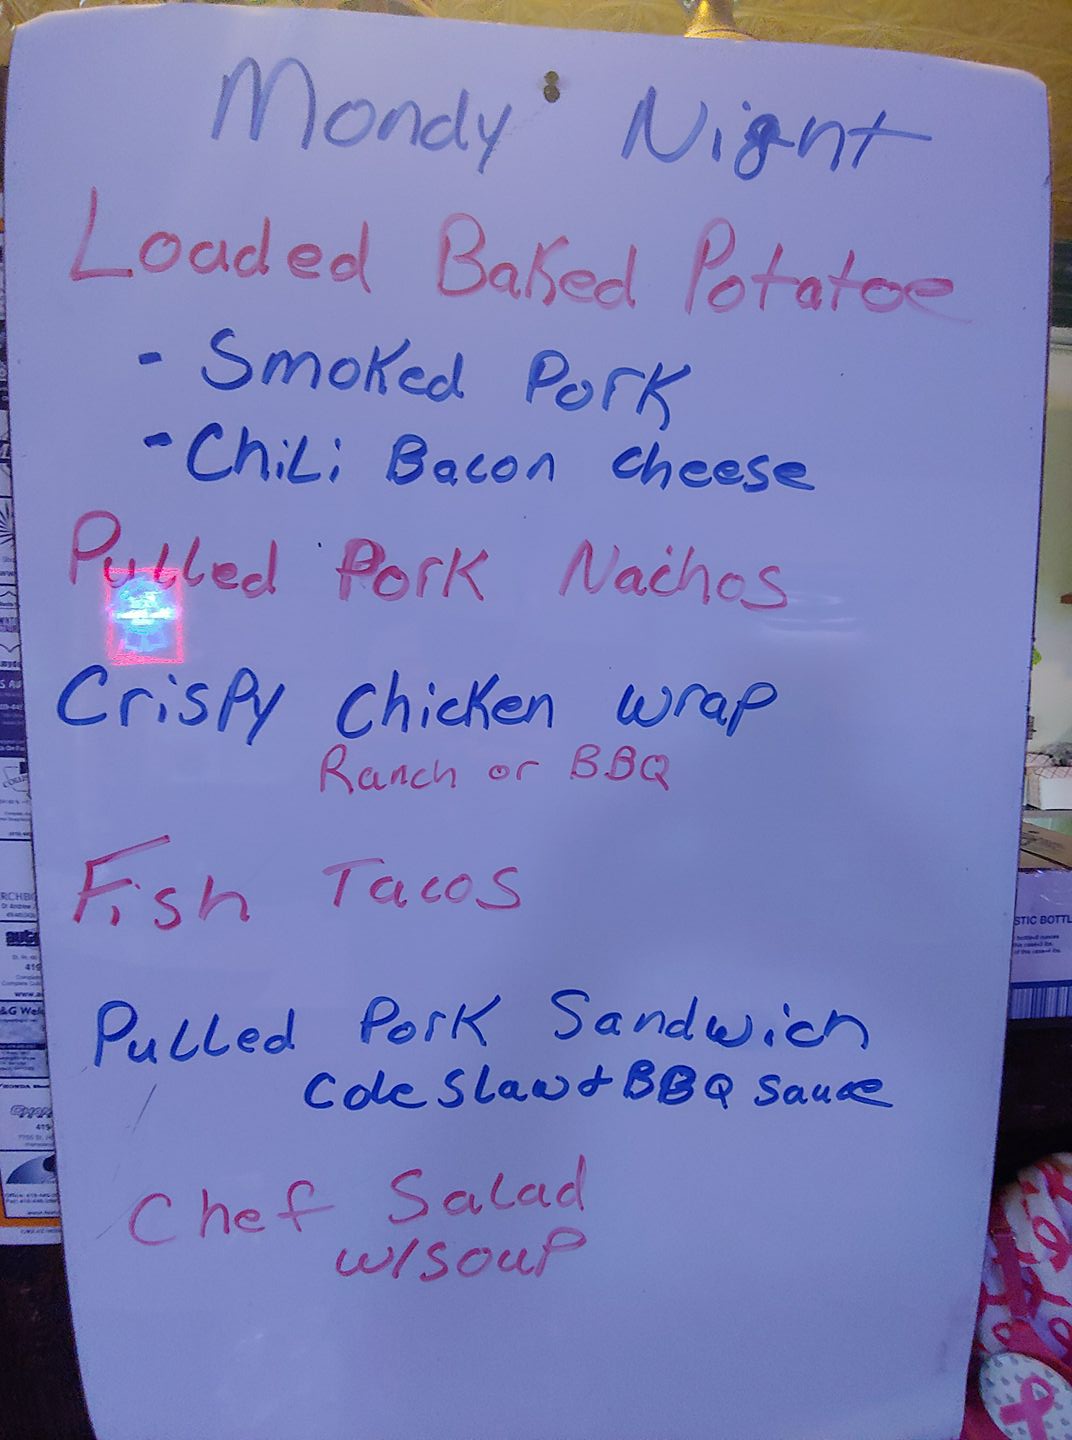 Mondy Night
Loaded Baked Potatoe
- Smoked Pork
- Chili Bacon cheese
Pulled Pork Nachos
Crispy Chicken wrap
Ranch or BBQ
Fish Tacos
Pulled Pork Sandwich
Cole Slaw & BBQ Sauce
Chef Salad
w/soup
STIC BOTTL
auto
419
www.a
&G Wel
419-